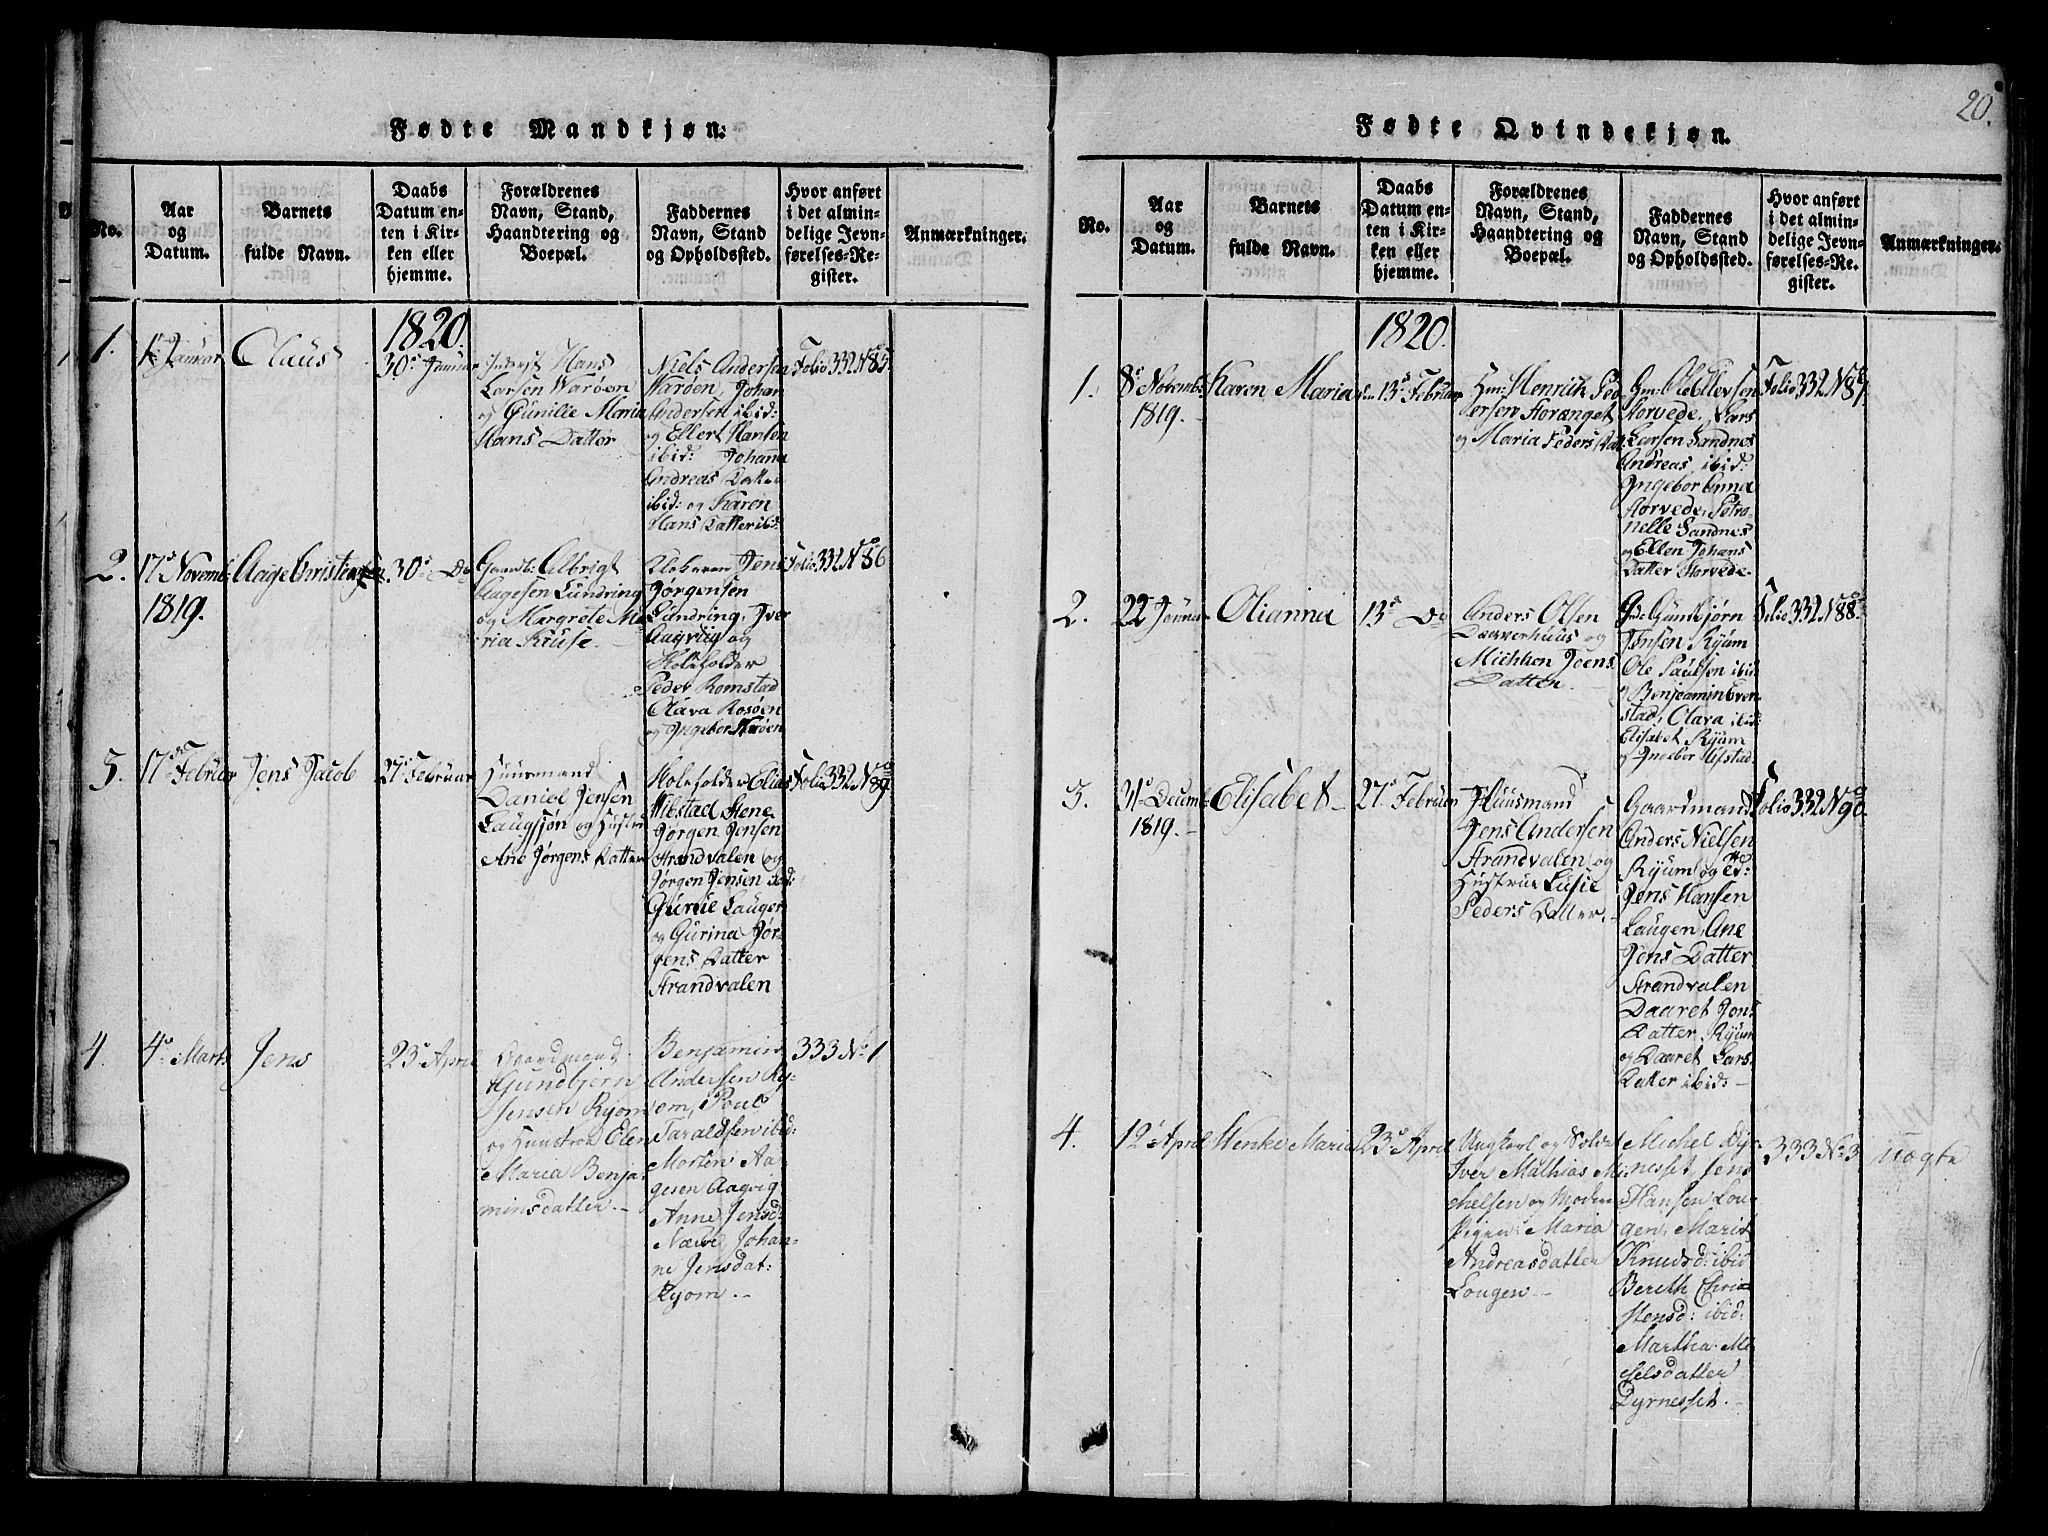 20.
Fødte Mandkjøn.
No.
Aar
og
Datum.
Barnets
fulde Navn.
Daabs
Datum en-
ten i Kir-
ken eller
hjemme.
Forældrenes
Navn, Stand,
Haandtering og
Boepæl.
Faddernes
Navn, Stand
og Opholdssted.
Hvor anført
i det almin-
delige Jevn-
førelses-Re-
gister.
Anmærkninger.
1820.
1.
Januar
Claus
30te Januar
Hans
Larsen Warøen
og Gunille Maria
Hans Datter
Niels Andersen
Warøen, Johan
Andersen ibid:
og Ellert Hansen
ibid: Johanna
Andreas Datter
ibid: og Karen
Hans Datter ibid:
Folio 332 No 85
2.
17de Novemb:
1819.
Aage Christian
30te Do
Gaardb: Albrigt
Aagesen Lundring
og Margrete Ma-
ria Kruse.
Jens
Jørgensen
Lundring, Iver
Aagviig og
Skoleholder
Peder Romstad
Olava Rosøen
og Ingebor Narøen
Folio 332 No 86
3.
17de Februar
Jens Jacob
27de Februar
Huusmand
Daniel Jensen
Laugsjøn og Hustrue
Ane Jørgens Datter
Skoleholder Elias
Wibstad
Jørgen Jensen
Strandvalen og
Jørgen Jensen ibid:
Laugen
og Gurina Jør-
gens Datter
Strandvalen
Folio 332 No 89
4.
4de Marts
Jens
23de April
Gaardmand
Gundbjørn
Jensen Ryom
og Huustroe Elen
Maria Benja-
minsdatter.
Benjamin
Andersen Ry-
em, Poul
Taraldsen ibid:
Morten Aa-
gesen Aagvig
Anne Jensd:
Nærve, Johan-
ne Jensdat:
Ryom.
333 No 1
Fødte Qvindekjøn.
No.
Aar
og
Datum.
Barnets
fulde Navn.
Daabs
Datum en-
ten i Kir-
ken eller
hjemme.
Forældrenes
Navn, Stand,
Haandtering og
Boepæl.
Faddernes
Navn, Stand
og Opholdssted.
Hvor anført
i det almin-
delige Jevn-
førelses-Re-
gister.
Anmærkninger.
1820.
1.
8de Novemb:
1819.
Karen Maria
13de Februar
Hm: Henrich Pe-
dersen Storænget
og Maria Peders Datt
Gm: Ole Ellevsen
Storvede, Lars
Larsen Sandnes
Andreas ibid:
Ingebor Anna
Storvede, Petro-
nelle Sandnes
og Ellen Johans
Datter Storvede
Folio 332 No 87
2.
22de Januar
Olianna
13de Do
Anders Olsen
og
Michken Joens
Datter
Gm: Gunbjørn
Jensen Ryum
Ole Paulsen ibid:
og Benjamin
stad, Olava ibid:
Elisabet Ryum
og Ingebor
Folio 332 No 88
3.
31te Decemb:
1819.
Elisabet
27de Februar
Huusmand
Jens Andersen
Strandvalen og
Hustrue Lusie
Peders Datter.
Gaardmand
Anders Nielsen
Ryum og
Jens Hansen
Laugen, Ane
Jens Datter
Strandvalen
Daaret Jens
Datter, Ryum
og Daaret Lars
Datter ibid:
Folio 332 No 90.
4.
12te April
Wenke Maria
23de April
Ungkarl og Soldat
Iver Mathias Mi-
chelsen og Moder
Pigen: Maria
Andreasdatter
Lougen
Michel Dyr-
nesset, Jens
Hansen Lou-
gen, Marit
Knudsd: ibid
Bereth Chris-
tensd: ibid:
Martha Mi-
chelsdatter
Dyrnesset.
333 No 3
Uægte